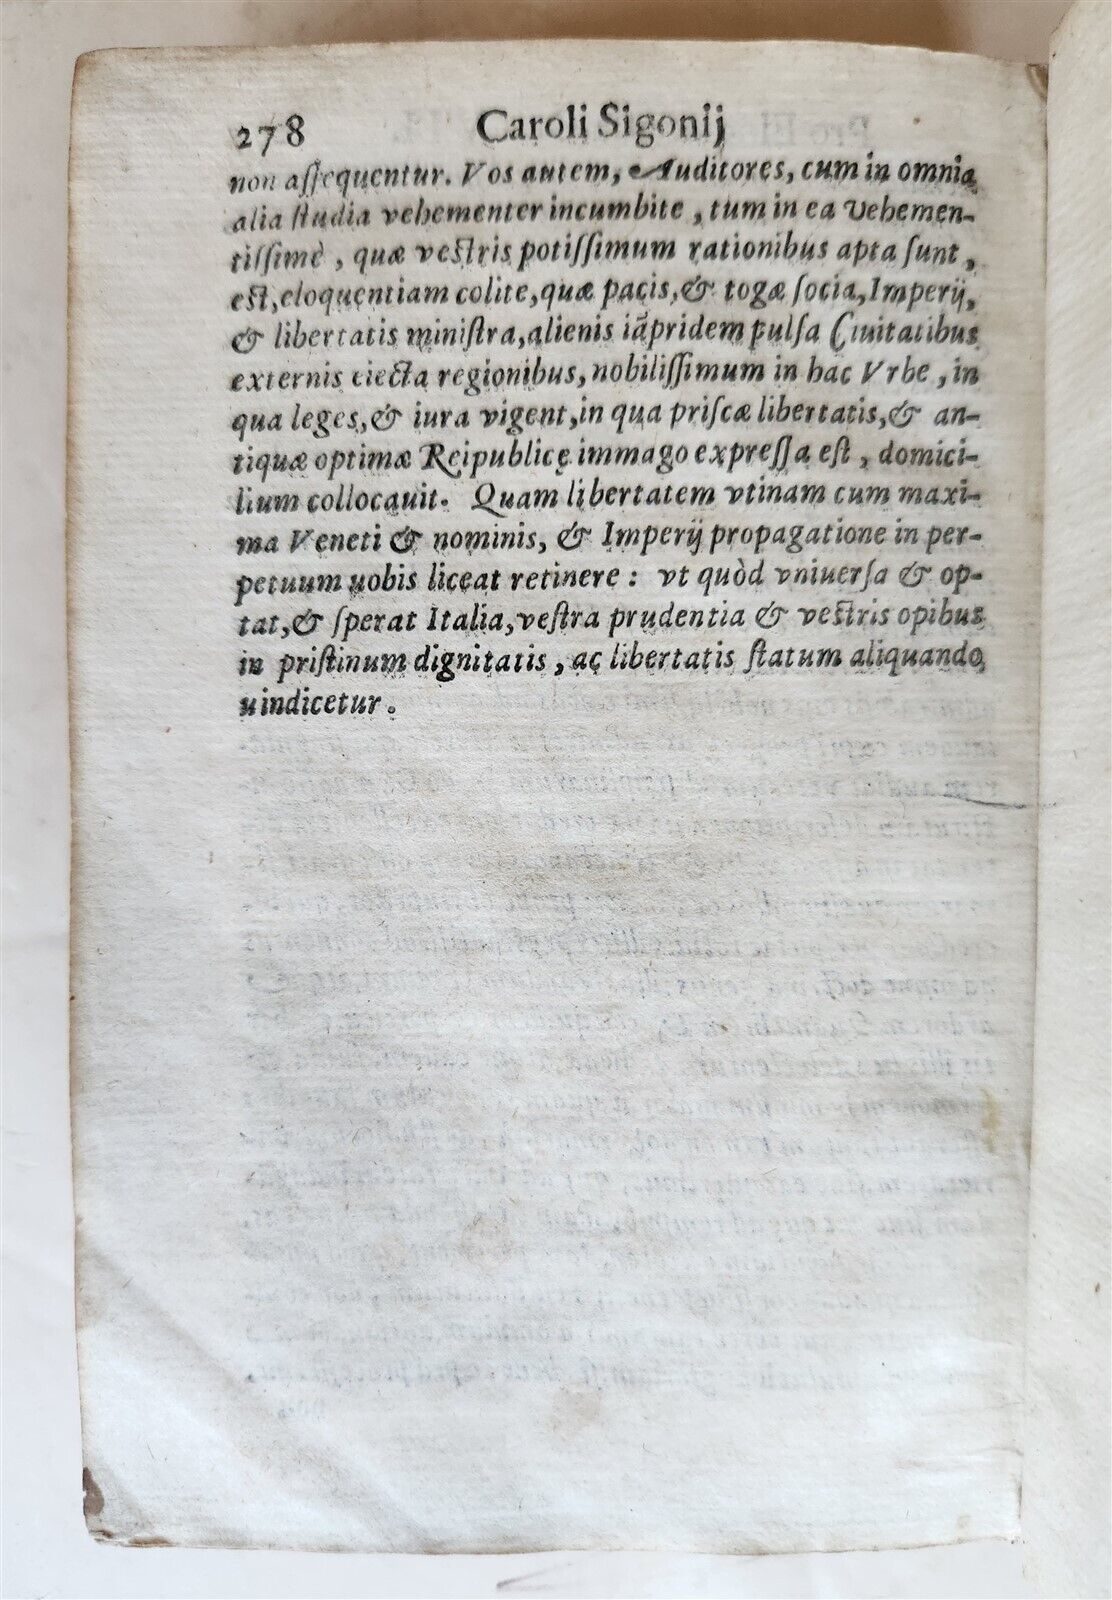 278 Caroli Sigonij
non aſſequentur. Vos autem, Auditores, cum in omnia
alia ſtudia vehementer incumbite, tum in ea vehemen-
tiſſimè, quæ veſtris potiſſimum rationibus apta ſunt,
eſt, eloquentiam colite, quæ pacis, & togæ ſocia, Imperij,
& libertatis miniſtra, alienis iãpridem pulſa Ciuitatibus
externis eiecta regionibus, nobiliſſimum in hac Vrbe, in
qua leges, & iura vigent, in qua priſcæ libertatis, & an-
tiquæ optimæ Reipublicę immago expreſſa eſt, domici-
lium collocauit. Quam libertatem vtinam cum maxi-
ma Veneti & nominis, & Imperij propagatione in per-
petuum uobis liceat retinere: vt quòd vniuerſa & op-
tat, & ſperat Italia, veſtra prudentia & veſtris opibus
in priſtinum dignitatis, ac libertatis ſtatum aliquando
uindicetur.